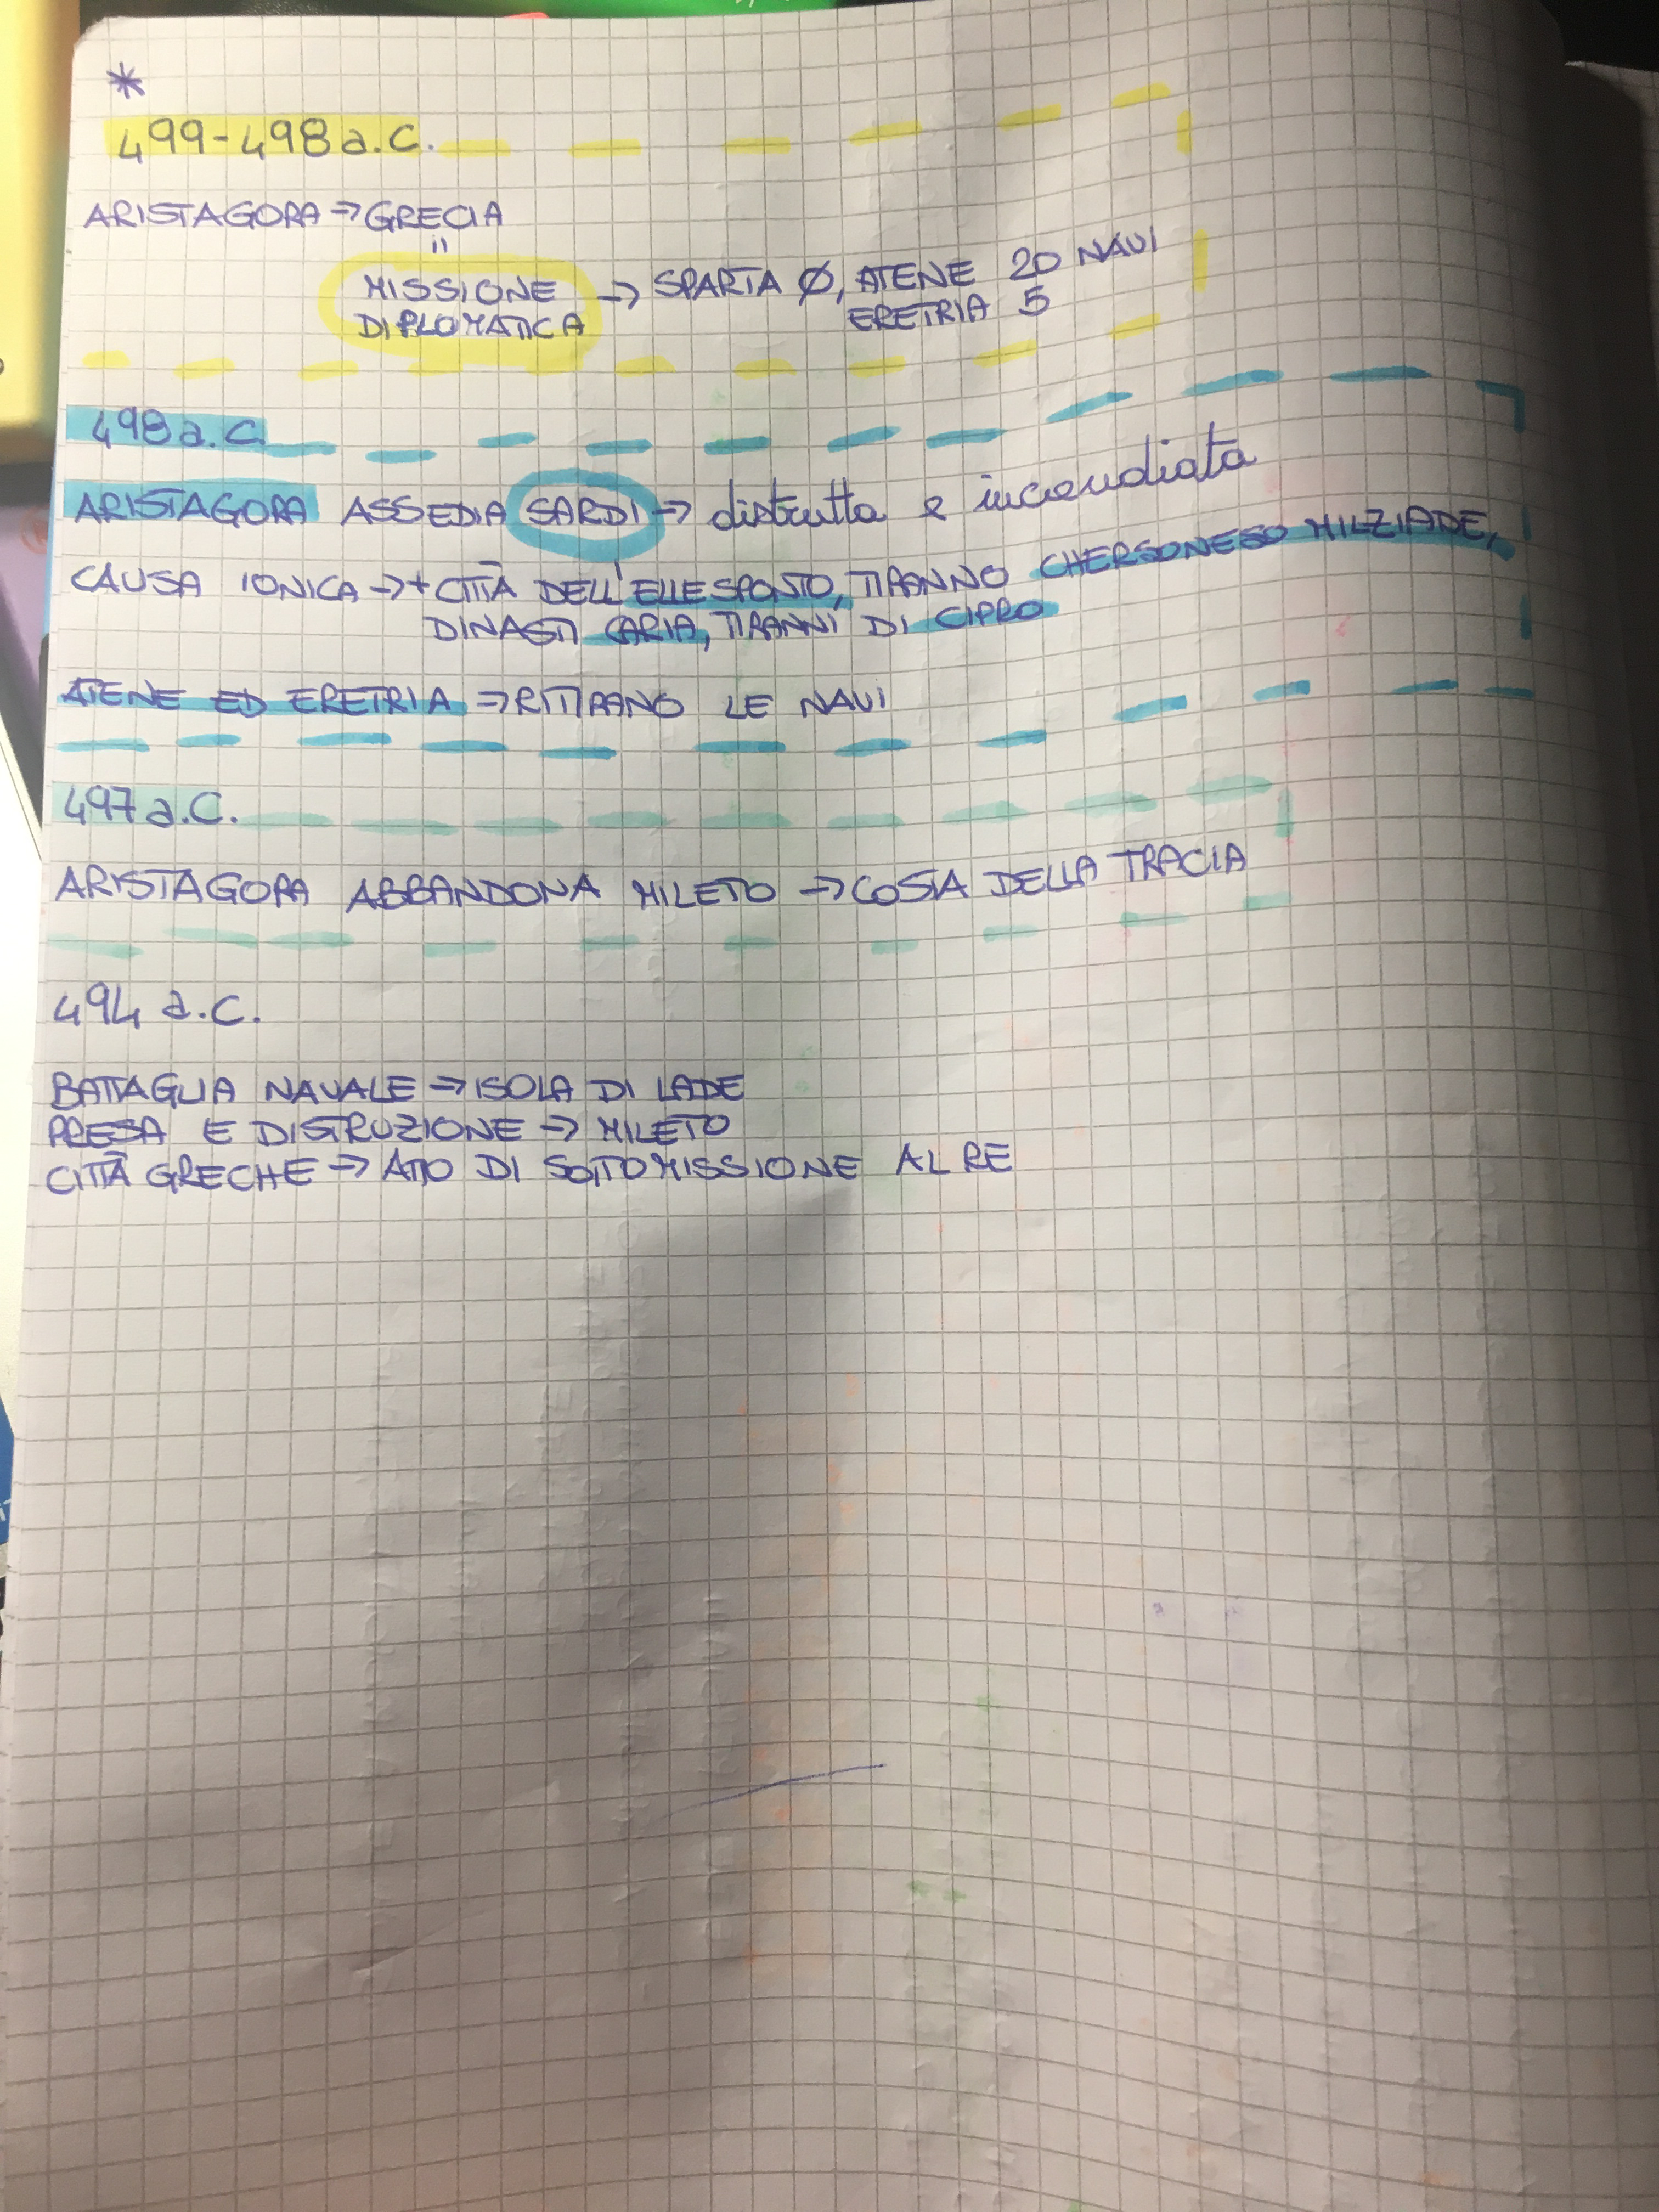 *
499-498 a.C.
ARISTAGORA → GRECIA
MISSIONE → SPARTA Ø, ATENE 20 NAVI
DIPLOMATICA ERETRIA 5
498 a.C.
ARISTAGORA ASSEDIA SARDI → distrutta e incendiata
CAUSA IONICA → + CITTÀ DELL'ELLESPONTO, TIRANNO CHERSONESO MILZIADE,
DINASTI CARIA, TIRANNI DI CIPRO
ATENE ED ERETRIA → RITIRANO LE NAVI
497 a.C.
ARISTAGORA ABBANDONA MILETO → COSTA DELLA TRACIA
494 a.C.
BATTAGLIA NAVALE → ISOLA DI LADE
PRESA E DISTRUZIONE → MILETO
CITTÀ GRECHE → ATTO DI SOTTOMISSIONE AL RE